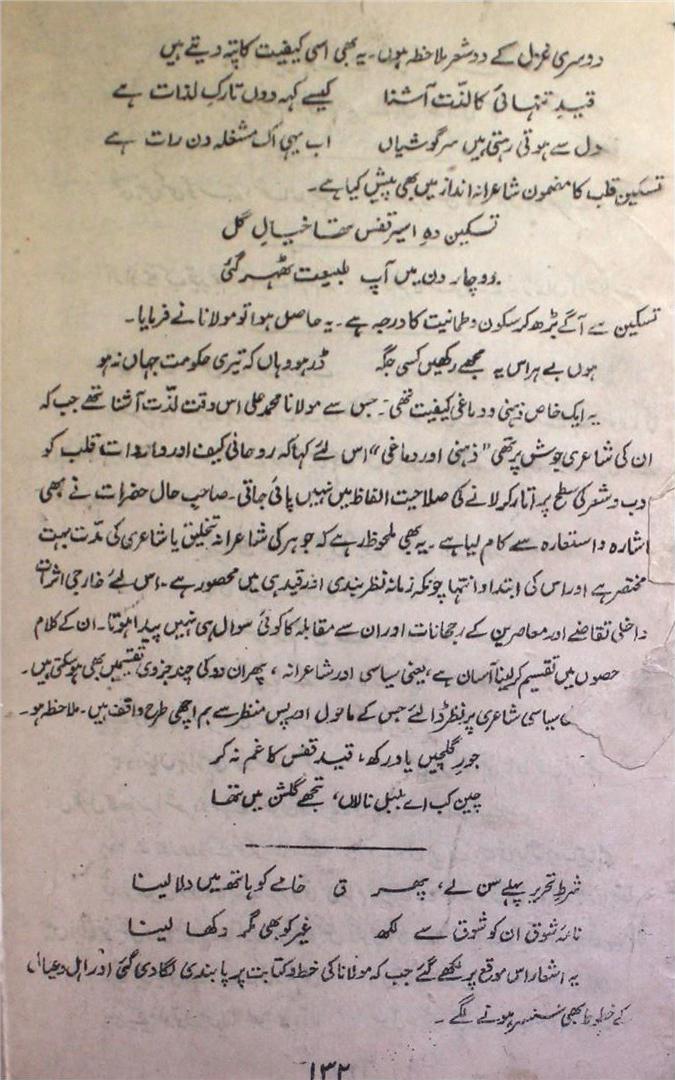 دوسری غزل کے دو شعر ملاحظہ ہوں۔ یہ بھی اسی کیفیت کا پتہ دیتے ہیں
قیدِ تنہائی کا لذّت آشنا کیسے کہہ دوں تارکِ لذات ہے
دل سے ہوتی رہتی ہیں سرگوشیاں اب یہی اک مشغلہ دن رات ہے
تسکین قلب کا مضمون شاعرانہ انداز میں بھی پیش کیا ہے۔
تسکین دہِ اسیر قفس تھا خیالِ گل
دو چار دن میں آپ طبیعت ٹھہر گئی
تسکین سے آگے بڑھ کر سکون و طمانیت کا درجہ ہے۔ یہ حاصل ہوا تو مولانا نے فرمایا۔
ہوں بے ہراس یہ مجھے رکھیں کسی جگہ ڈر ہو وہاں کہ تیری حکومت جہاں نہ ہو
یہ ایک خاص ذہنی و دماغی کیفیت تھی۔ جس سے مولانا محمد علی اس وقت لذّت آشنا تھے جب کہ
ان کی شاعری جوش پر تھی "ذہنی اور دماغی" اس لئے کہا کہ روحانی کیف اور واردات قلب کو
دب و شعر کی سطح پر اتار کر لانے کی صلاحیت الفاظ میں نہیں پائی جاتی۔ صاحبِ حال حضرات نے بھی
اشارہ و استعارہ سے کام لیا ہے۔ یہ بھی ملحوظ رہے کہ جوہر کی شاعرانہ تخلیق یا شاعری کی مدّت بہت
مختصر ہے اور اس کی ابتدا و انتہا چونکہ زمانہ نظر بندی اور قید ہی میں محصور ہے۔ اس لئے خارجی اثرات
داخلی تقاضے اور معاصرین کے رجحانات اور ان سے مقابلہ کا کوئی سوال ہی نہیں پیدا ہوتا۔ ان کے کلام
حصوں میں تقسیم کر لینا آسان ہے، یعنی سیاسی اور شاعرانہ، پھر ان دو کی چند جزوی تقسیمیں بھی ہو سکتی ہیں۔
سیاسی شاعری پر نظر ڈالئے جس کے ماحول اور پس منظر سے ہم اچھی طرح واقف ہیں۔ ملاحظہ ہو۔
جورِ گلچیں یاد رکھ، قید قفس کا غم نہ کر
چین کب اے بلبل نالاں، تجھے گلشن میں تھا
شرطِ تحریر پہلے سن لے، پھر ق خامے کو ہاتھ میں دلا لینا
نامۂ شوق ان کو شوق سے لکھ غیر کو بھی مگر دکھا لینا
یہ اشعار اس موقع پر لکھے گئے جب کہ مولانا کی خط و کتابت پر پابندی لگا دی گئی اور اہل و عیال
کے خطوط بھی سنسر ہونے لگے۔
۱۳۲